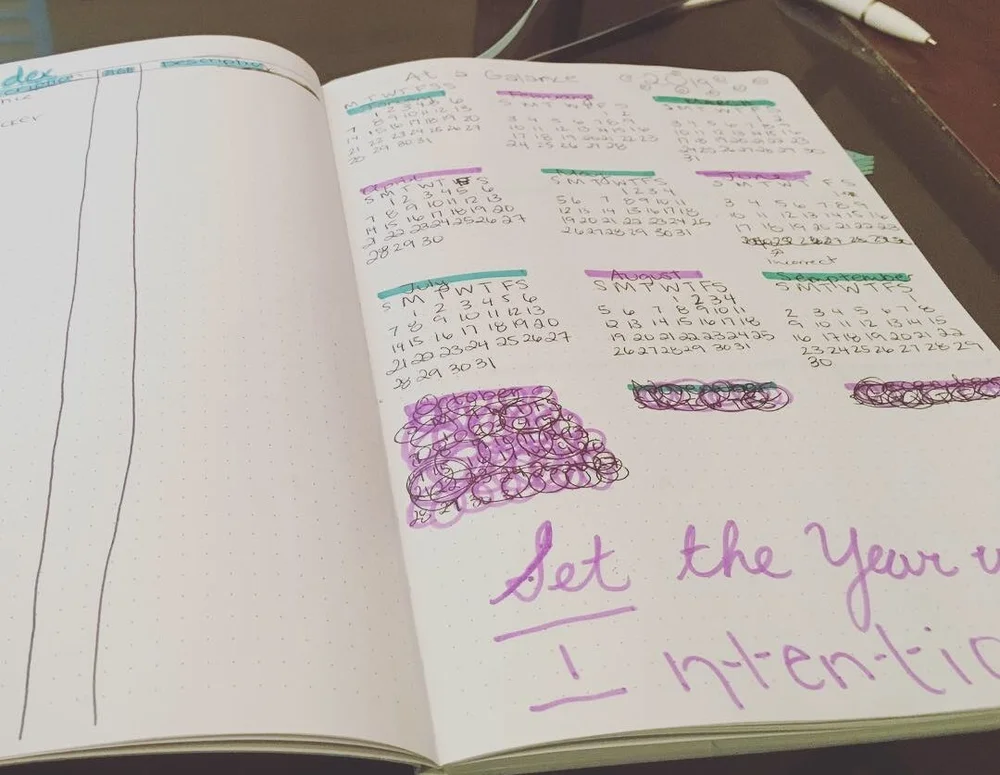 dex
Description
At a Galance 2019
January
M T W T F S S
1 2 3 4 5 6
7 8 9 10 11 12 13
14 15 16 17 18 19 20
21 22 23 24 25 26 27
28 29 30 31
February
S M T W T F S
1 2
3 4 5 6 7 8 9
10 11 12 13 14 15 16
17 18 19 20 21 22 23
24 25 26 27 28
March
S M T W T F S
1 2
3 4 5 6 7 8 9
10 11 12 13 14 15 16
17 18 19 20 21 22 23
24 25 26 27 28 29 30
31
April
S M T W T F S
1 2 3 4 5 6
7 8 9 10 11 12 13
14 15 16 17 18 19 20
21 22 23 24 25 26 27
28 29 30
May
S M T W T F S
1 2 3 4
5 6 7 8 9 10 11
12 13 14 15 16 17 18
19 20 21 22 23 24 25
26 27 28 29 30 31
June
S M T W T F S
1
3 4 5 6 7 8 9
10 11 12 13 14 15 16
17 18 19 20 21 22 23
incorrect
July
S M T W T F S
1 2 3 4 5 6
7 8 9 10 11 12 13
14 15 16 17 18 19 20
21 22 23 24 25 26 27
28 29 30 31
August
S M T W T F S
1 2 3 4
5 6 7 8 9 10 11
12 13 14 15 16 17 18
19 20 21 22 23 24 25
26 27 28 29 30 31
September
S M T W T F S
1
2 3 4 5 6 7 8
9 10 11 12 13 14 15
16 17 18 19 20 21 22
23 24 25 26 27 28 29
30
October
Set the Year
Intentio